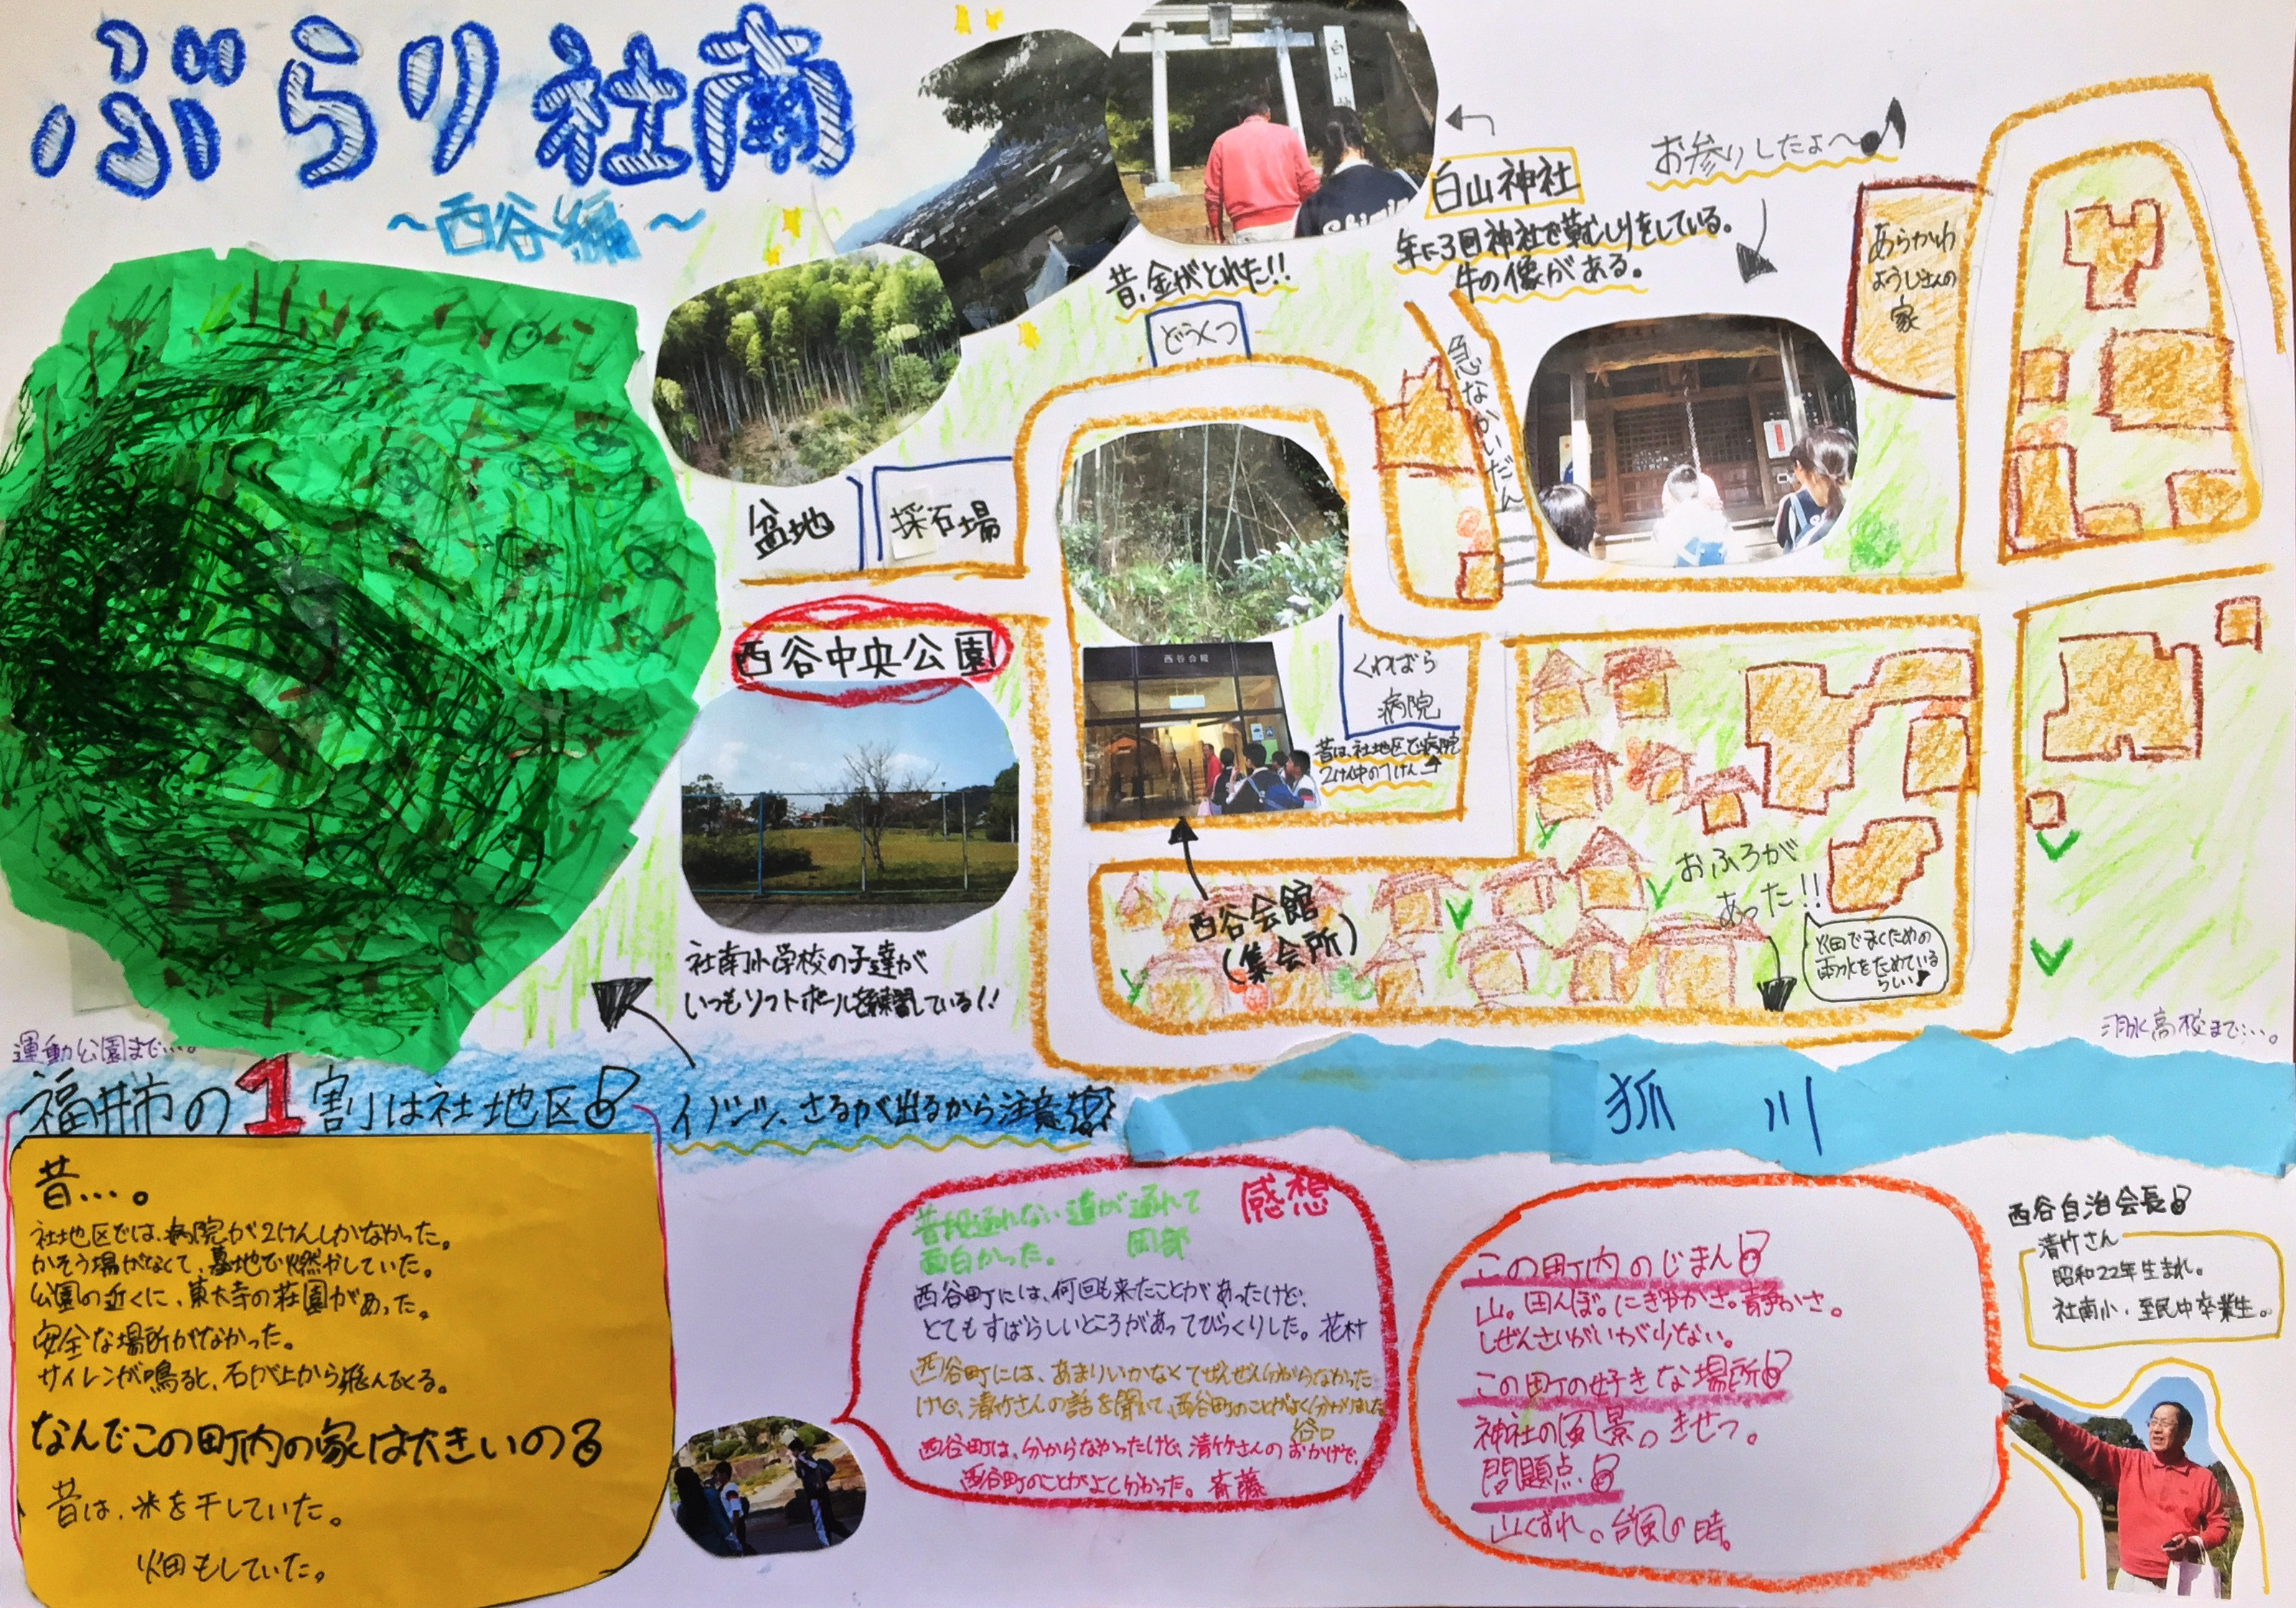 ぶらり社南
～西谷編～
白山神社
お参りしたよ～♪
年に3回神社で草むしりをしている。
牛の像がある。
昔、金がとれた!!
どうくつ
急なかいだん
あらかわ
ようじさんの
家
盆地
採石場
西谷中央公園
社南小学校の子達が
いつもソフトボールを練習している!!
西谷会館
くわばら
病院
昔は、社地区で病院
2けん中の1けん
西谷会館
(集会所)
おふろが
あった!!
畑でまくための
雨水をためている
らしい♪
運動公園まで…。
羽水高校まで…。
福井市の1割は社地区
イノシシ、さるが出るから注意
狐川
昔…。
社地区では、病院が2けんしかなかった。
かそう場がなくて、墓地で燃がしていた。
公園の近くに、東大寺の荘園があった。
安全な場所がなかった。
サイレンが鳴ると、石が上から飛んでくる。
なんでこの町内の家は大きいの
昔は、米を干していた。
畑もしていた。
感想
普段通れない道が通れて
面白かった。 岡部
西谷町には、何回も来たことがあったけど、
とてもすばらしいところがあってびっくりした。花村
西谷町には、あまりいかなくてぜんぜん分からなかった
けど、清竹さんの話を聞いて、西谷町のことがよく分かりました
谷口
西谷町は、分からなかったけど、清竹さんのおかげで、
西谷町のことがよく分かった。斉藤
この町内のじまん
山。田んぼ。にぎやかさ。静かさ。
しぜんさいがいが少ない。
この町の好きな場所
神社の風景。きせつ。
問題点
山くずれ。台風の時。
西谷自治会長
清竹さん
昭和22年生まれ。
社南小、至民中卒業生。